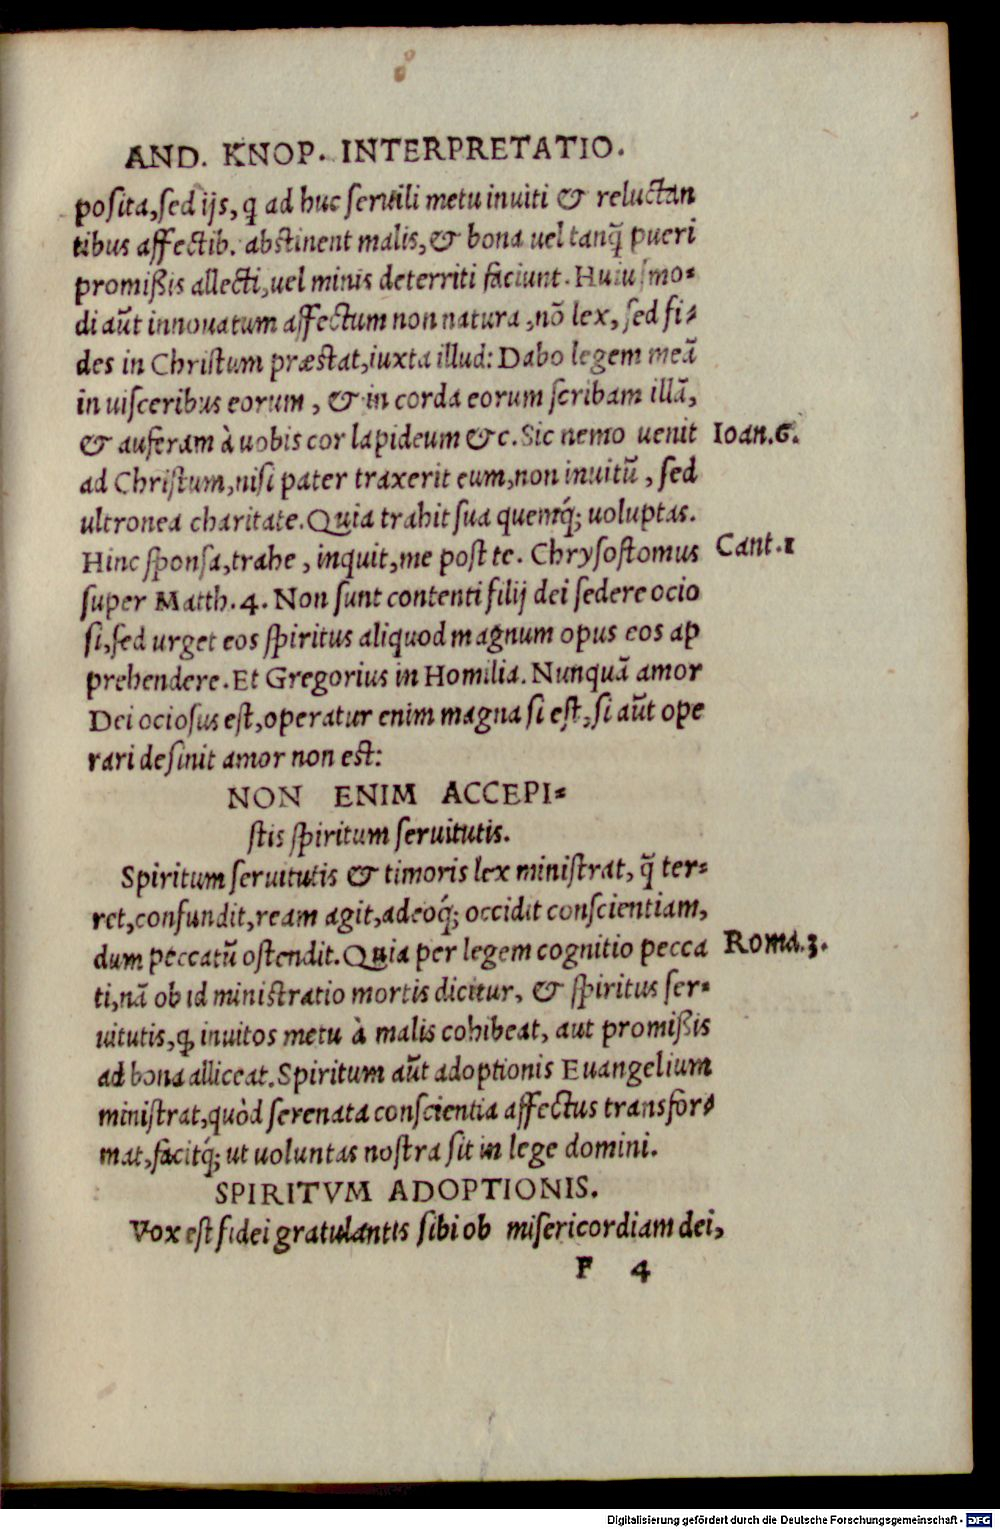 AND. KNOP. INTERPRETATIO.
posita, sed ijs, q ad huc seruili metu inuiti & reluctan
tibus affectib. abstinent malis, & bona uel tanq̃ pueri
promißis allecti, uel minis deterriti faciunt. Huiusmo-
di aūt innouatum affectum non natura, nō lex, sed fi-
des in Christum præstat, iuxta illud: Dabo legem meā
in uisceribus eorum, & in corda eorum scribam illā,
& auferam à uobis cor lapideum &c. Sic nemo uenit
Ioan.6.
ad Christum, nisi pater traxerit eum, non inuitū, sed
ultronea charitate. Quia trahit sua quemq́; uoluptas.
Hinc sponsa, trahe, inquit, me post te. Chrysostomus
Cant.1
super Matth. 4. Non sunt contenti filij dei sedere ocio
si, sed urget eos spiritus aliquod magnum opus eos ap
prehendere. Et Gregorius in Homilia. Nunquā amor
Dei ociosus est, operatur enim magna si est, si aūt ope
rari desinit amor non est:
NON ENIM ACCEPI-
stis spiritum seruitutis.
Spiritum seruitutis & timoris lex ministrat, q̃ ter-
ret, confundit, ream agit, adeoq́; occidit conscientiam,
dum peccatū ostendit. Quia per legem cognitio pecca
Roma.3.
ti, nā ob id ministratio mortis dicitur, & spiritus ser-
uitutis, ꝙ inuitos metu à malis cohibeat, aut promißis
ad bona alliceat. Spiritum aūt adoptionis Euangelium
ministrat, quòd serenata conscientia affectus transfor-
mat, facitq́; ut uoluntas nostra sit in lege domini.
SPIRITVM ADOPTIONIS.
Vox est fidei gratulantis sibi ob misericordiam dei,
F 4
Digitalisierung gefördert durch die Deutsche Forschungsgemeinschaft - DFG